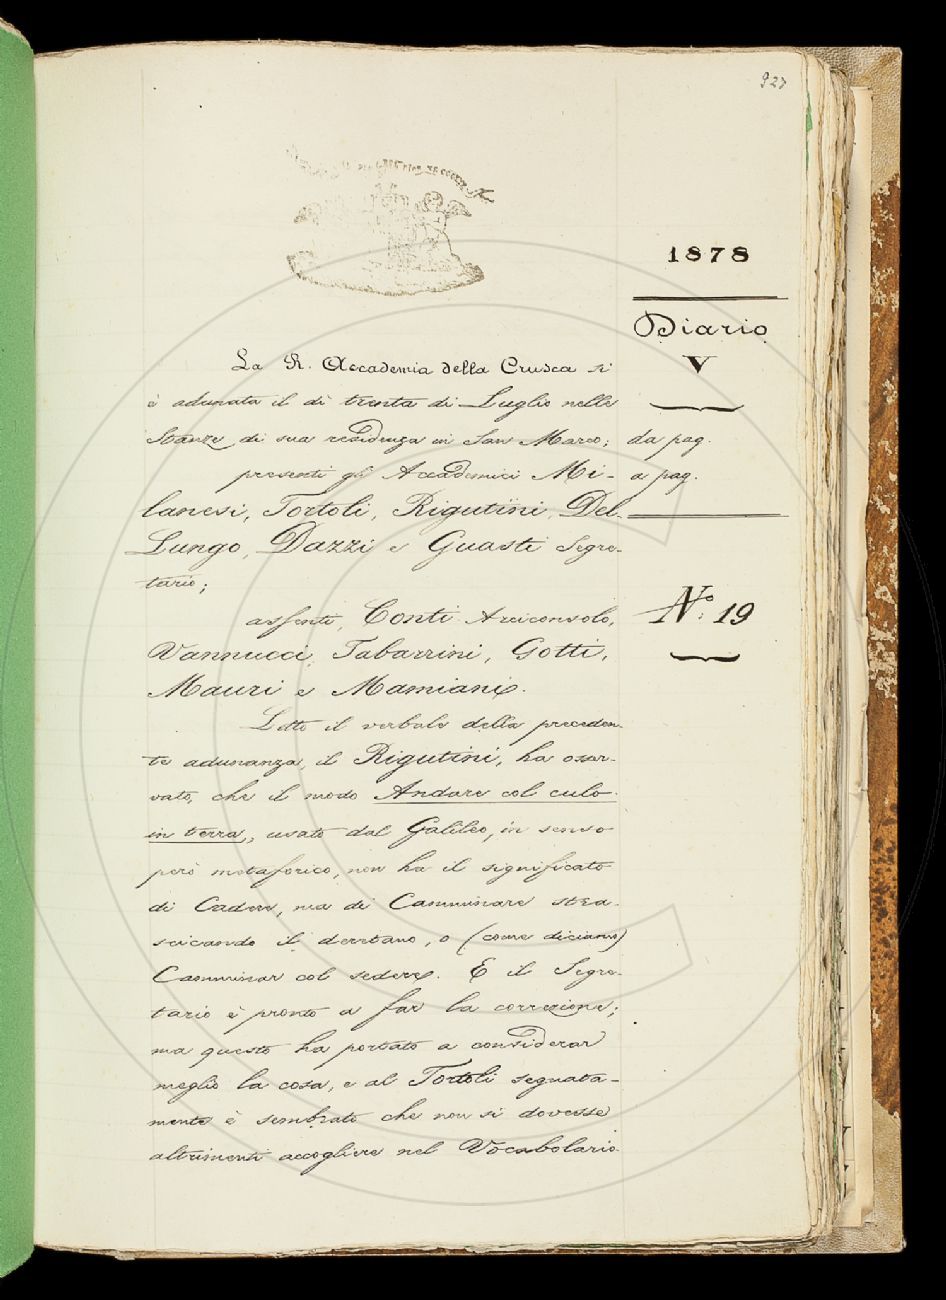 927
1878
Diario
V
da pag.
a pag.
No. 19
La R. Accademia della Crusca si
è adunata il dì trenta di Luglio nelle
Stanze di sua residenza in San Marco;
presenti gli Accademici Mi-
lanesi, Tortoli, Rigutini, Del
Lungo, Dazzi e Guasti Segre-
tario;
assenti, Conti Arciconsolo,
Vannucci, Tabarrini, Gotti,
Mauri e Mamiani.
Letto il verbale della preceden-
te adunanza, il Rigutini, ha osser-
vato, che il modo Andare col culo
in terra, usato dal Galileo, in senso
però metaforico, non ha il significato
di Cadere, ma di Camminare stra-
scicando il deretano, o (come diciamo)
Camminar col sedere. E il Segre-
tario è pronto a far la correzione;
ma questo ha portato a considerar
meglio la cosa, e al Tortoli segnata-
mente è sembrato che non si dovesse
altrimenti accogliere nel Vocabolario